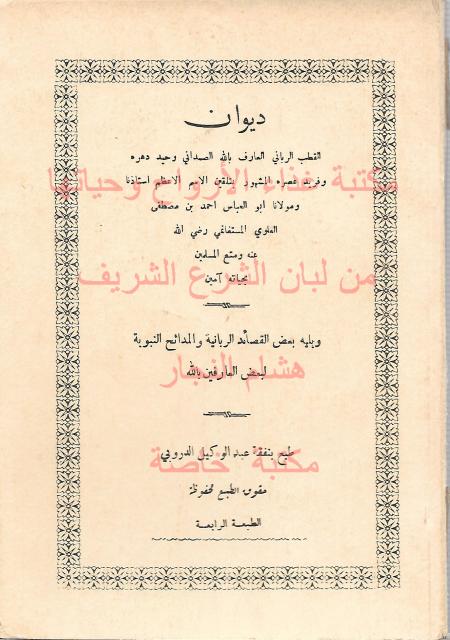 ديوان
القطب الرباني العارف بالله الصمداني وحيد دهره
مكتبة غذاء الأرواح وحياتها
وفريد عصره المشهور بتلقين الاسم الاعظم استاذنا
ومولانا ابو العباس احمد بن مصطفى
العلوي المستغانمي رضي الله
عنه ومتع المسلمين
من لبان الشرع الشريف
بحياته آمين
ويليه بعض القصائد الربانية والمدائح النبوية
هشام النجار
لبعض العارفين بالله
طبع بنفقة عبد الوكيل الدروبي
مكتبة خاصة
حقوق الطبع محفوظة
الطبعة الرابعة